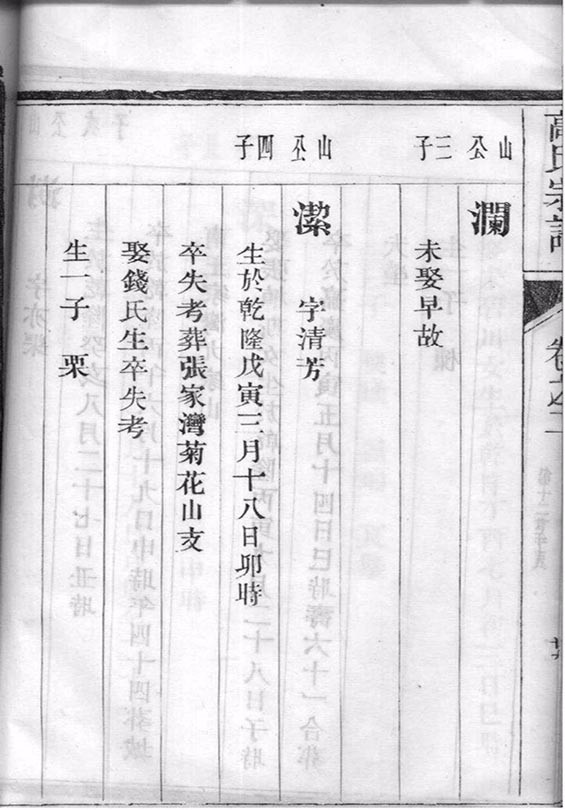 高氏宗譜
卷之二
山公三子
瀾
未娶早故
山公四子
潔 字清芳
生於乾隆戊寅三月十八日卯時
卒失考葬張家灣菊花山支
娶錢氏生卒失考
生一子 栗